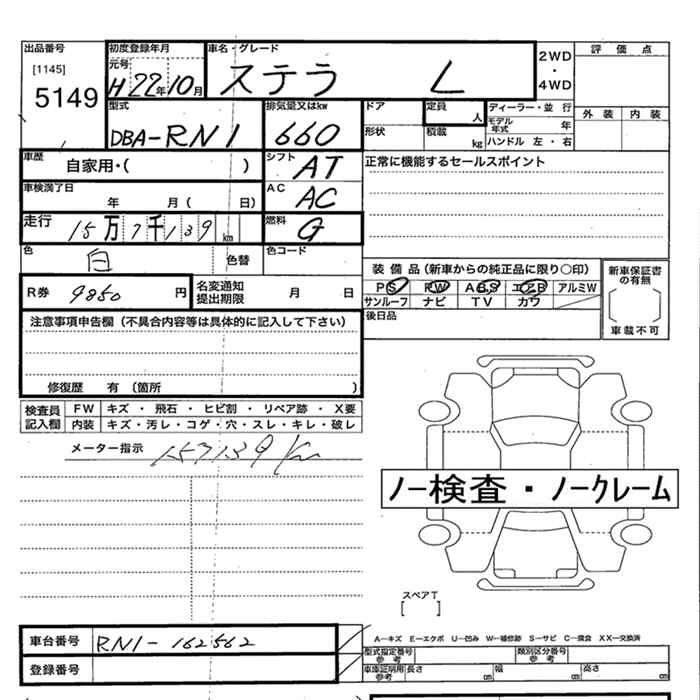 出品番号
[1145]
5149
初度登録年月
元号
H22年10月
車名・グレード
ステラ L
2WD
・
4WD
評価点
外装 内装
型式
DBA-RN1
排気量又はkw
660
ドア
形状
定員
人
積載
kg
ディーラー・並行
モデル年式 年
ハンドル 左・右
車歴
自家用・( )
シフト
AT
正常に機能するセールスポイント
車検満了日
年 月( 日)
AC
AC
走行
15万7千139km
燃料
G
色
白
色替
色コード
R券 9850 円
名変通知
提出期限
月 日
装備品(新車からの純正品に限り○印)
PS PW ABS エアB アルミW
サンルーフ ナビ TV カワ
後日品
新車保証書
の有無
車載不可
注意事項申告欄(不具合内容等は具体的に記入して下さい)
修復歴 有 (箇所 )
検査員
記入欄
FW キズ・飛石・ヒビ割・リペア跡・X要
内装 キズ・汚レ・コゲ・穴・スレ・キレ・破レ
メーター指示 157139Km
ノー検査・ノークレーム
スペアT
[ ]
車台番号 RN1-162562
登録番号
A−キズ E−エクボ U−凹み W−補修跡 S−サビ C−腐食 XX−交換済
型式指定番号
参考
類別区分番号
参考
車庫証明用
参考
長さ cm 幅 cm 高さ cm